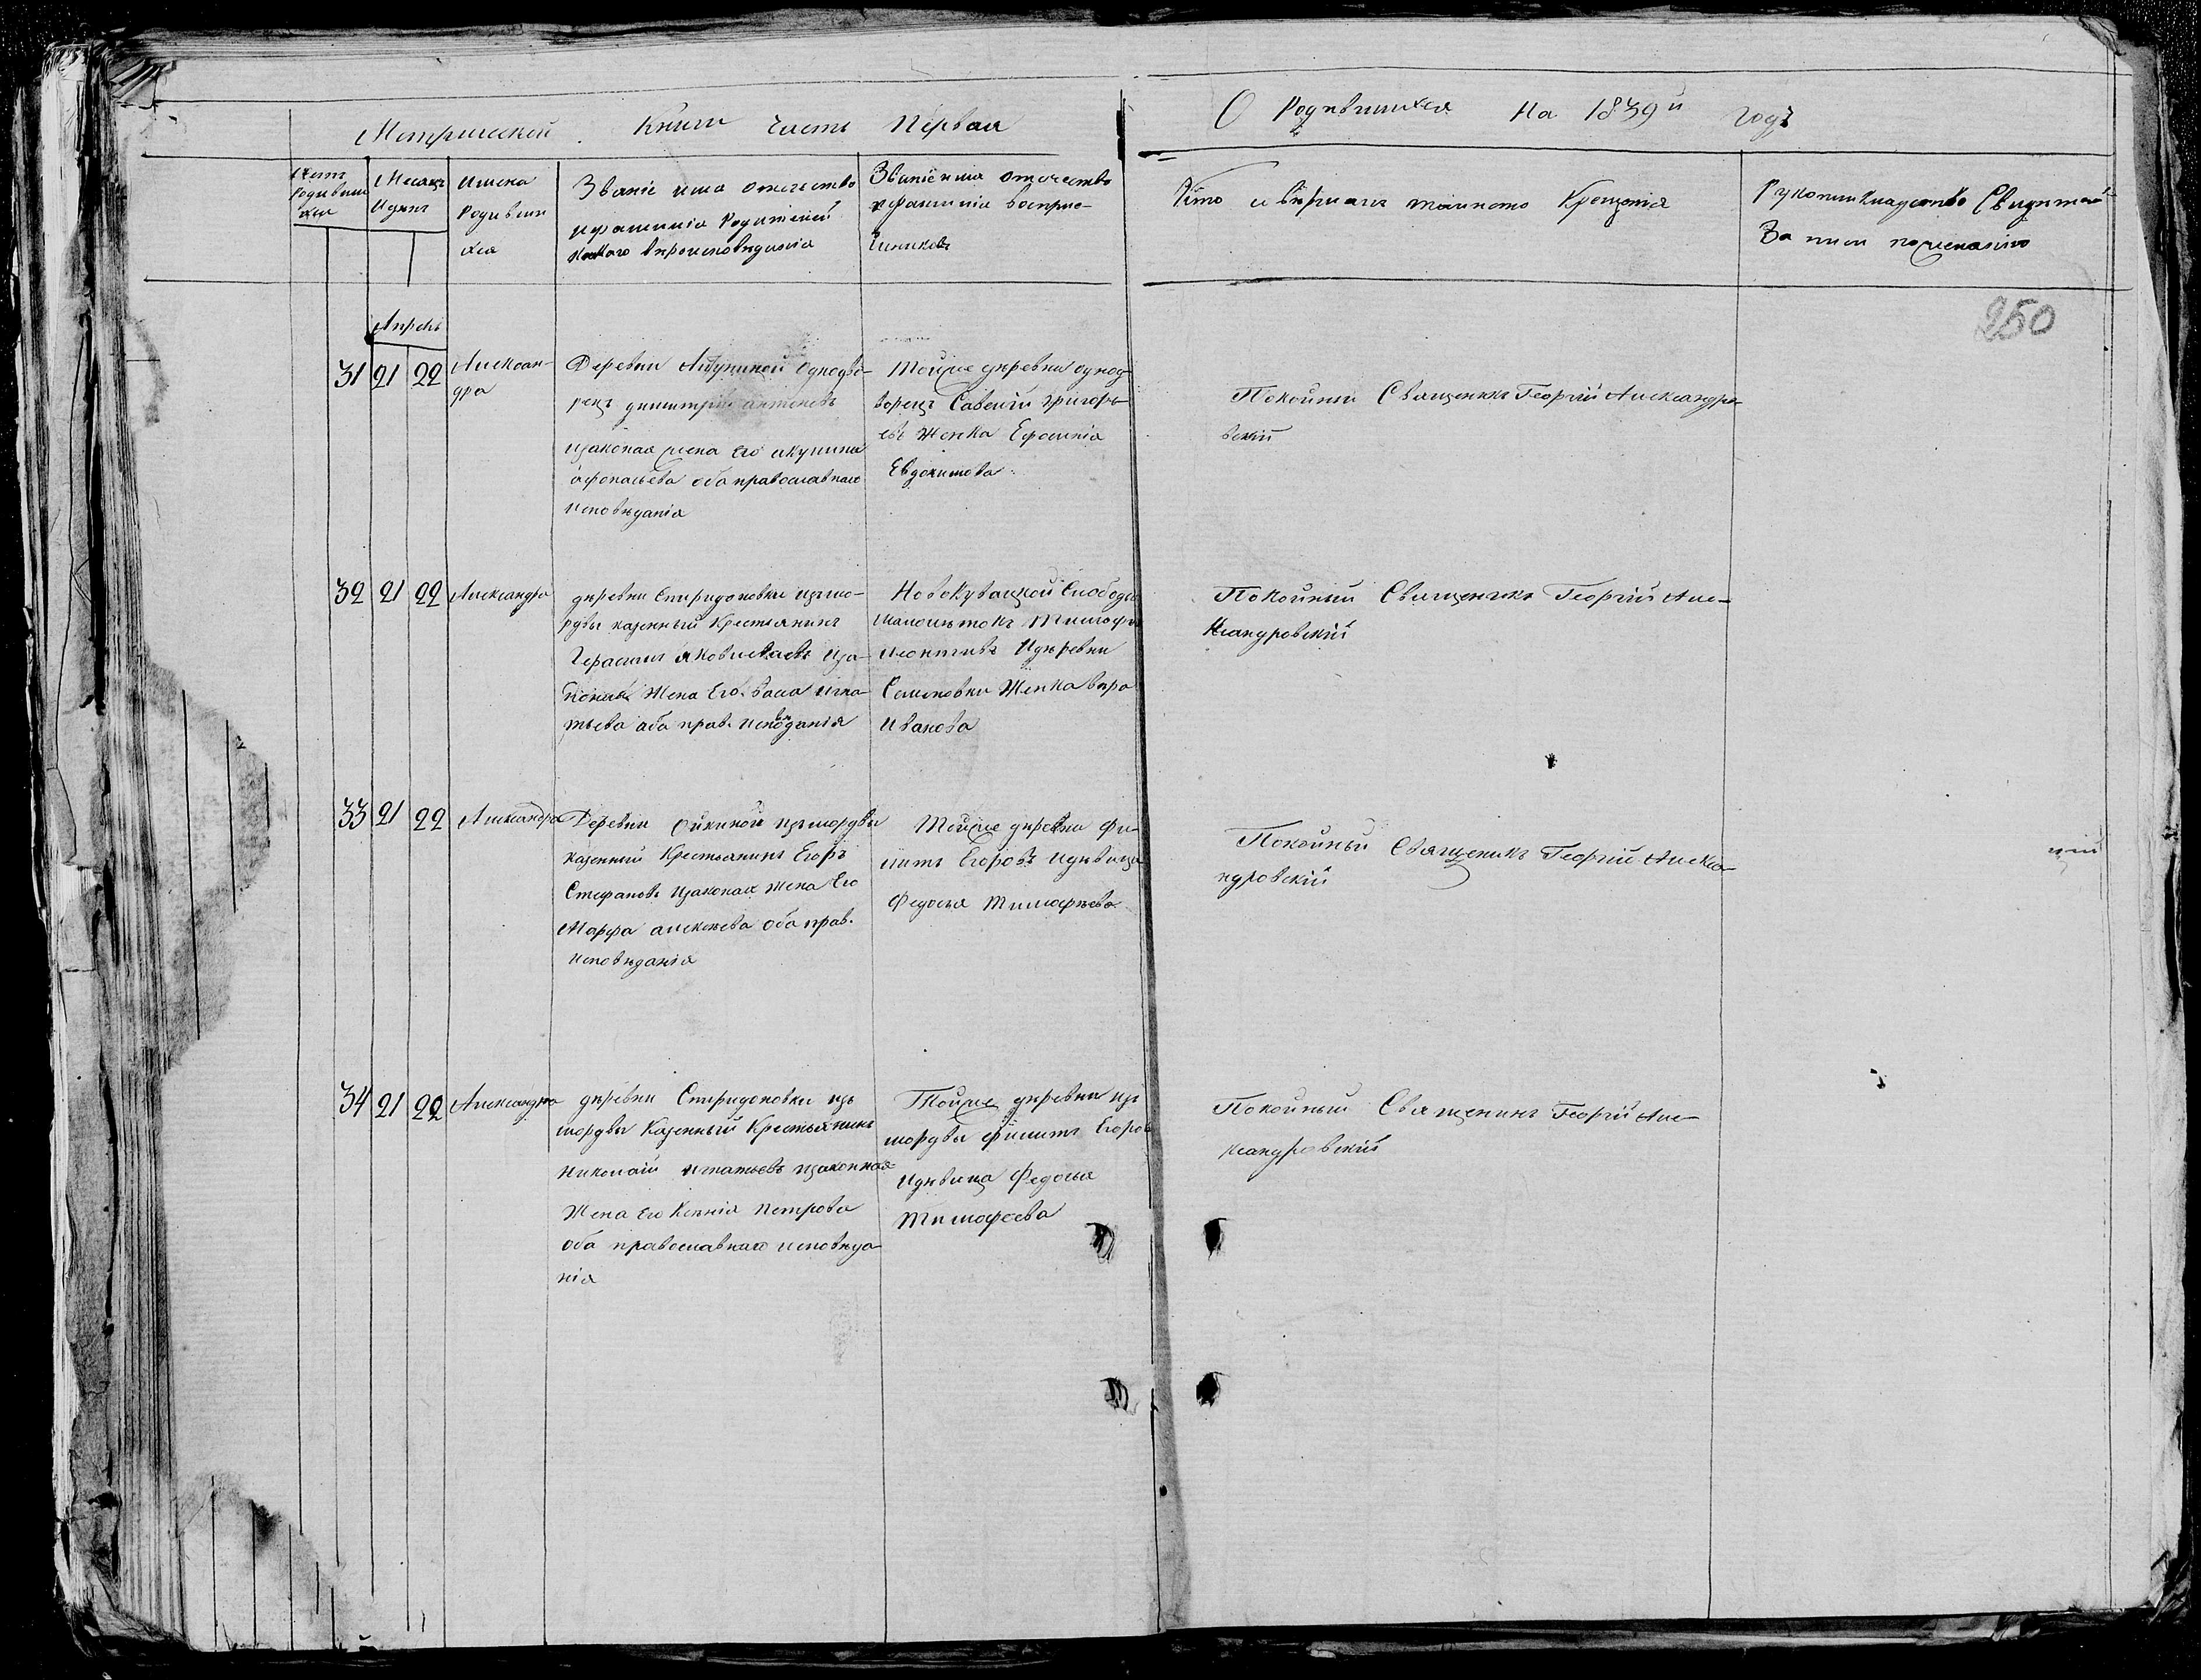 Метрической Книги часть Первая
О Родившихся На 1839й годъ
Счетъ Родившихся
Месяцъ И день
Имена Родившихся
Званіе имя отечество
и фамилія Родителей
какого вѣроисповѣданія
Званіе имя отечество
и фамилія воспріе-
мниковъ
Кто совѣршалъ таинство Крещенія
Рукоприкладство Свидетелей
За писи по желанію
250
Апрель
31 21 22
Алексан-
дра
Деревни Однодво-
рецъ димитрій антоновъ
изаконая жена Его акулина
афонасьева оба православнаго
исповѣданія
Тойже деревни однод-
ворецъ Савелій григорь-
евъ Женка Ефимія
Евдокимова
Покойный Священикъ Георгій Александро-
вскій
32 21 22
Александра
дѣревни Спиридоновки измо-
рдвы казенный Крестьянинъ
Герасимъ Яковлевъ иза-
коная Жена Его васа игна-
тьева оба прав. исповѣданія
Новокувацкой Слободы
малолѣтокъ Тимофей
леонтиевъ Идѣревни
Семеновки Женка вѣра
Иванова
Покойный Священикъ Георгій Але-
ксандровскій
33 21 22
Александра
Деревни Ойкиной измордвы
казенный Крестьянинъ Егоръ
Стефановъ Изаконая жена Его
Марфа алексѣева Оба прав.
исповѣданія
Тойже дѣревни Фи-
липъ Егоровъ Идѣвица
Федосья Тимофѣева
Покойный Священикъ Георгій Алекса-
ндровскій
34 21 22
Александра
дѣревни Спиридоновки изъ
мордвы Казенный Крестьянинъ
Николай игнатьевъ изаконная
Жена Его Ксенія Петрова
оба православнаго исповѣда-
нія
Тойже дѣревни изъ
мордвы филипъ Егоровъ
Идѣвица Федосья
Тимофеева
Покойный Священикъ Георгій Але-
ксандровскій